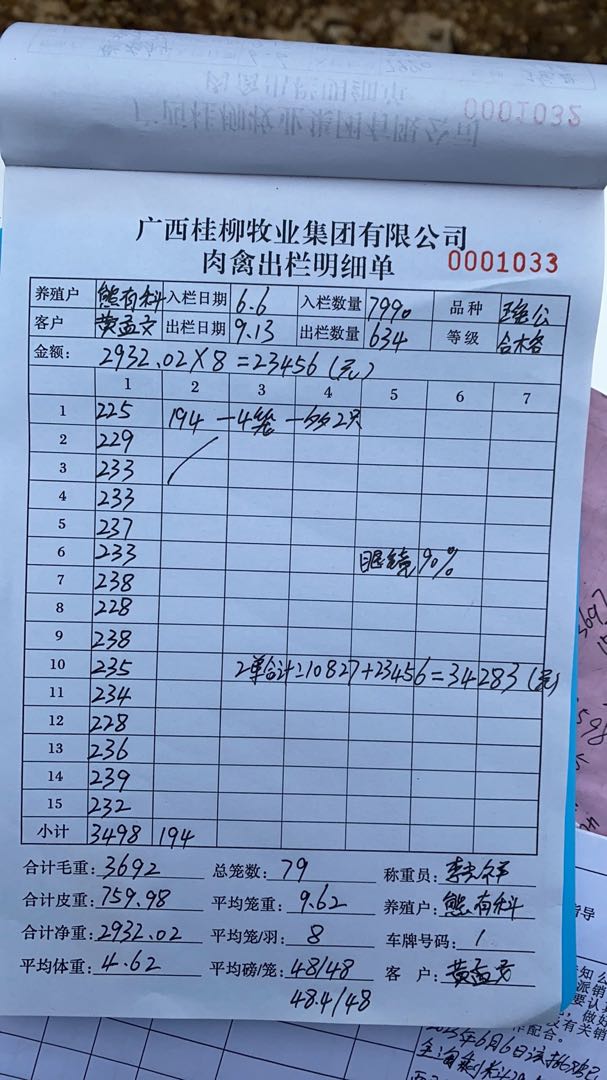 0001032
广西桂柳牧业集团有限公司
肉禽出栏明细单 0001033
养殖户 熊有科 入栏日期 6.6 入栏数量 7990 品种 瑶公
客户 黄孟文 出栏日期 9.13 出栏数量 634 等级 合格
金额: 2932.02×8=23456(元)
1 2 3 4 5 6 7
1 225 194 一4笼 一 2只
2 229
3 233
4 233
5 237
6 233 眼镜90%
7 238
8 228
9 238
10 235 2单合计=10827+23456=34283(元)
11 234
12 228
13 236
14 239
15 232
小计 3498 194
合计毛重: 3692 总笼数: 79 称重员:
合计皮重: 759.98 平均笼重: 9.62 养殖户: 熊有科
合计净重: 2932.02 平均笼/羽: 8 车牌号码: 1
平均体重: 4.62 平均磅/笼: 48/48 客户: 黄孟文
48.4/48